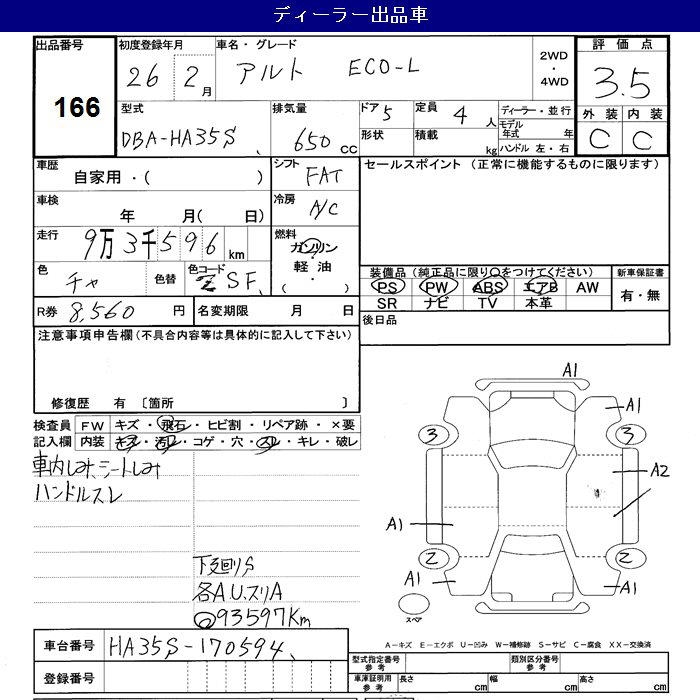 ディーラー出品車
出品番号 166
初度登録年月 26 2月
車名・グレード アルト ECO-L
2WD・4WD
評価点 3.5
型式 DBA-HA35S
排気量 650cc
ドア 5 定員 4人
形状 積載 kg
ディーラー・並行
モデル年式 年
ハンドル 左・右
外装 内装
C C
車歴 自家用・( )
シフト FAT
セールスポイント (正常に機能するものに限ります)
車検 年 月( 日)
冷房 A/C
走行 9万3千596km
燃料 ガソリン・軽油・( )
色 チャ 色替 色コード Z SF
装備品(純正品に限り○をつけてください) 新車保証書
PS PW ABS エアB AW 有・無
SR ナビ TV 本革
R券 8,560円 名変期限 月 日
後日品
注意事項申告欄(不具合内容等は具体的に記入して下さい)
修復歴 有 〔箇所 〕
検査員記入欄
FW キズ・飛石・ヒビ割・リペア跡・×要
内装 キズ・汚レ・コゲ・穴・スレ・キレ・破レ
車内しみ、シートしみ
ハンドルスレ
下廻りS
各AU、スリA
93597Km
A1
A1
3 3
A2
A1
2 2
A1 A1
スペア
車台番号 HA35S-170594
登録番号
A-キズ E-エクボ U-凹み W-補修跡 S-サビ C-腐食 XX-交換済
型式指定番号 参考 類別区分番号 参考
車庫証明用 参考 長さ cm 幅 cm 高さ cm